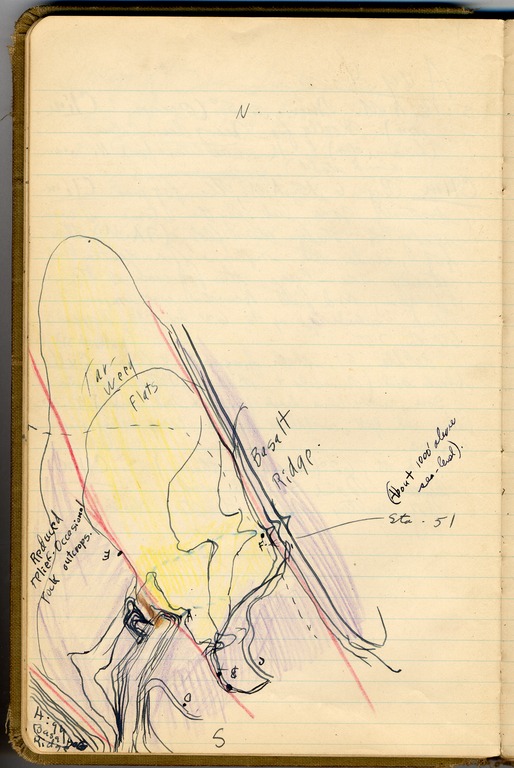 N.
Tar-
Weed
Flats
Basalt
Ridge.
(About 1000' above
sea-level).
Sta. 51
F.
Reduced
relief-Occasional
rock outcrops.
S
High
Basalt
Ridge